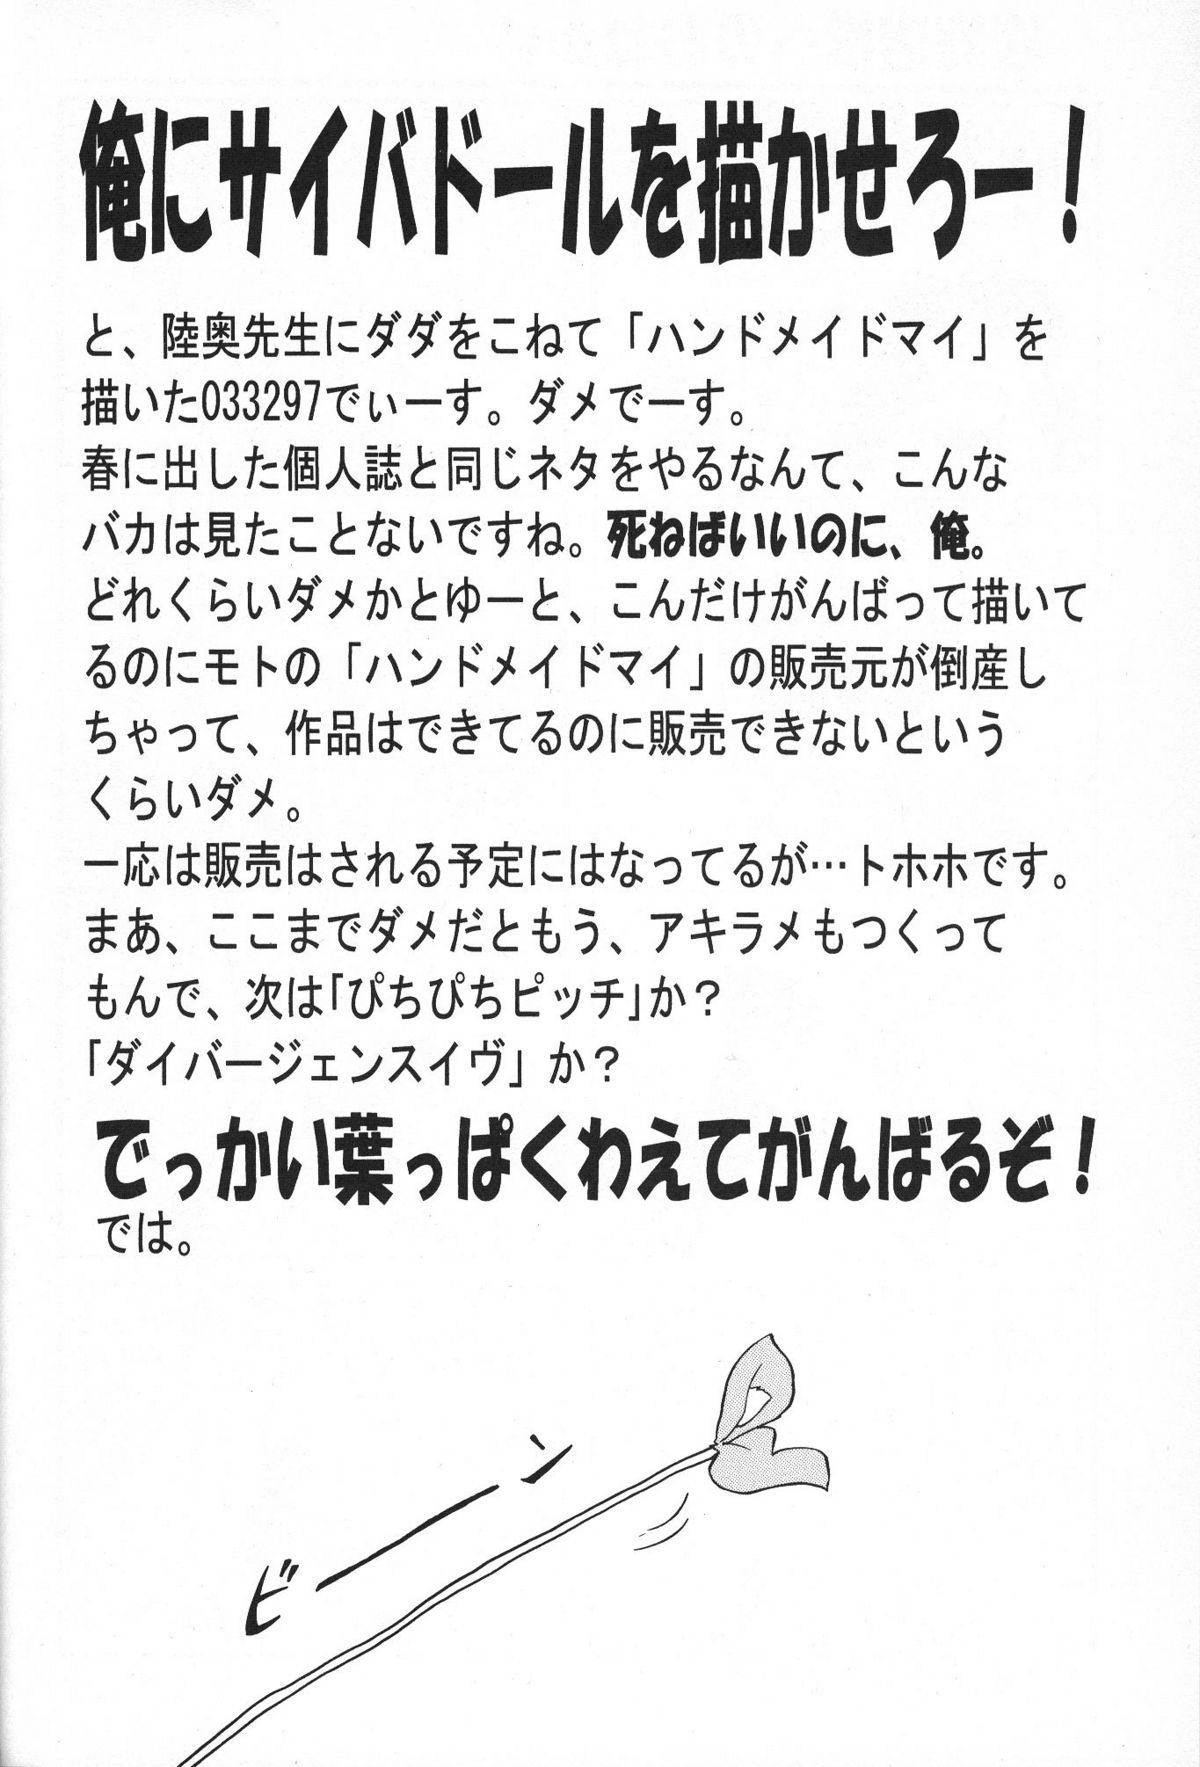 俺にサイバドールを描かせろー！
と、陸奥先生にダダをこねて「ハンドメイドマイ」を
描いた033297でぃーす。ダメでーす。
春に出した個人誌と同じネタをやるなんて、こんな
バカは見たことないですね。死ねばいいのに、俺。
どれくらいダメかとゆーと、こんだけがんばって描いて
るのにモトの「ハンドメイドマイ」の販売元が倒産し
ちゃって、作品はできてるのに販売できないという
くらいダメ。
一応は販売はされる予定にはなってるが…トホホです。
まあ、ここまでダメだともう、アキラメもつくって
もんで、次は「ぴちぴちピッチ」か？
「ダイバージェンスイヴ」か？
でっかい葉っぱくわえてがんばるぞ！
では。
ビーン